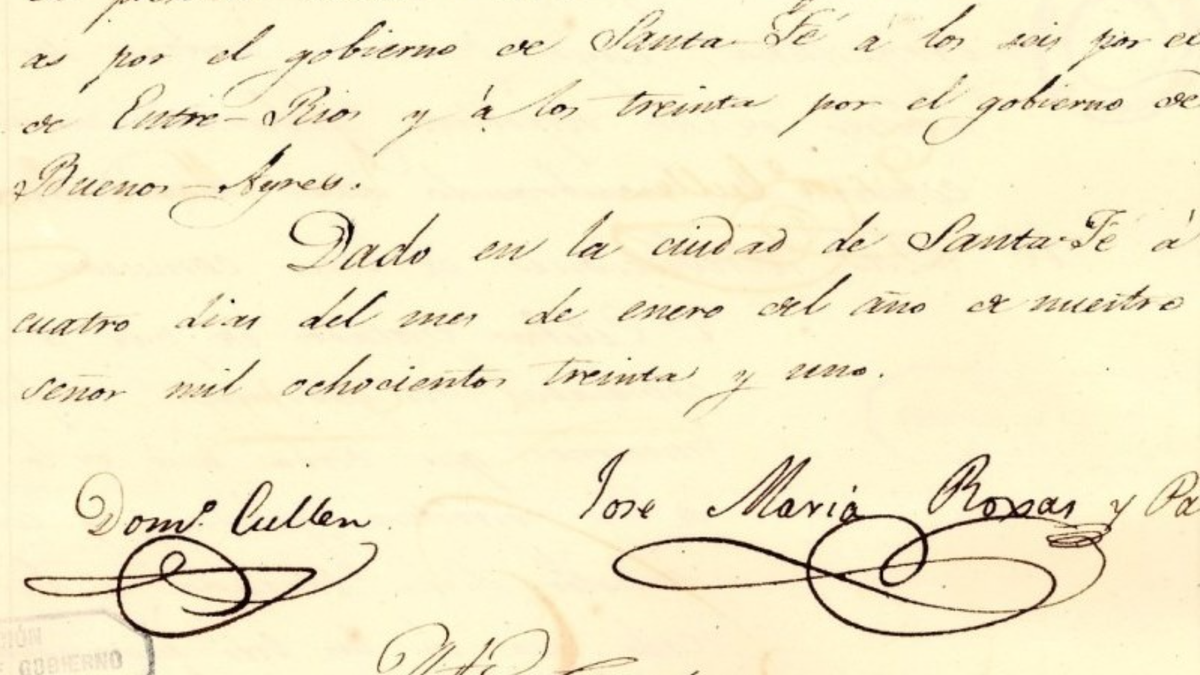 as por el gobierno de Santa-Fé á los seis por el
de Entre-Rios y á los treinta por el gobierno de
Buenos-Ayres.
Dado en la ciudad de Santa-Fé á
cuatro dias del mes de enero del año de nuestro
señor mil ochocientos treinta y uno.
Domo. Cullen
Jose Maria Roxas y Pa
IÓN
GOBIERNO